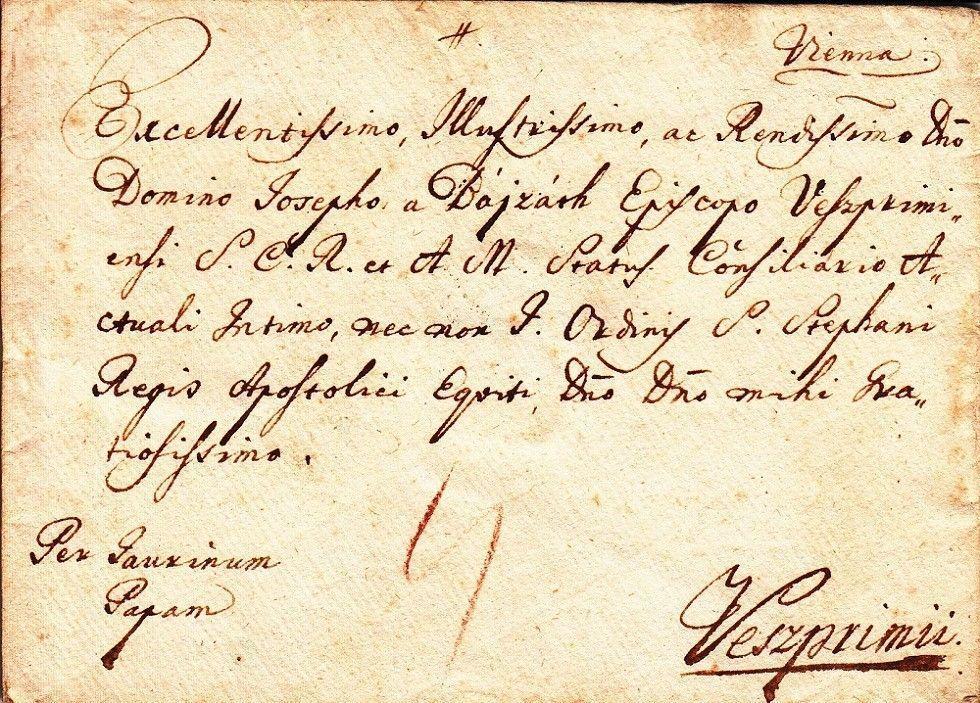 #.
Vienna.
Excellentissimo, Illustrissimo, ac Rendissimo Dño
Domino Josepho a Bájzáth Episcopo Veszprimi„
ensi S. C. R. et A M. Status Consiliario A„
ctuali Intimo, nec non I. Ordinis S. Stephani
Regis Apostolici Eqviti, Dño Dño mihi Gra„
tiosissimo.
Per Jaurinum
Papam
Veszprimii.